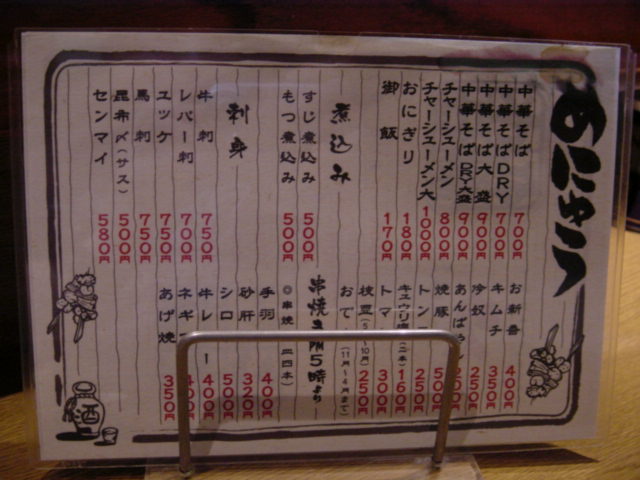 めにゅー
中華そば 700円
中華そばDRY 700円
中華そば大盛 900円
中華そばDRY大盛 900円
チャーシューメン 800円
チャーシューメン大 1000円
おにぎり 180円
御飯 170円
煮込み
すじ煮込み 500円
もつ煮込み 500円
刺身
牛刺 750円
レバー刺 700円
ユッケ 750円
馬刺 750円
昆布〆(サス) 500円
センマイ 580円
お新香 400円
キムチ 350円
冷奴 250円
焼豚 500円
250円
160円
トマ 300円
枝豆(5月〜10月) 250円
おで (11月〜4月まで)
串焼 PM5時より
手羽 400円
砂肝 320円
シロ 500円
牛レー 400円
ネギ 400円
あげ焼 350円
酒